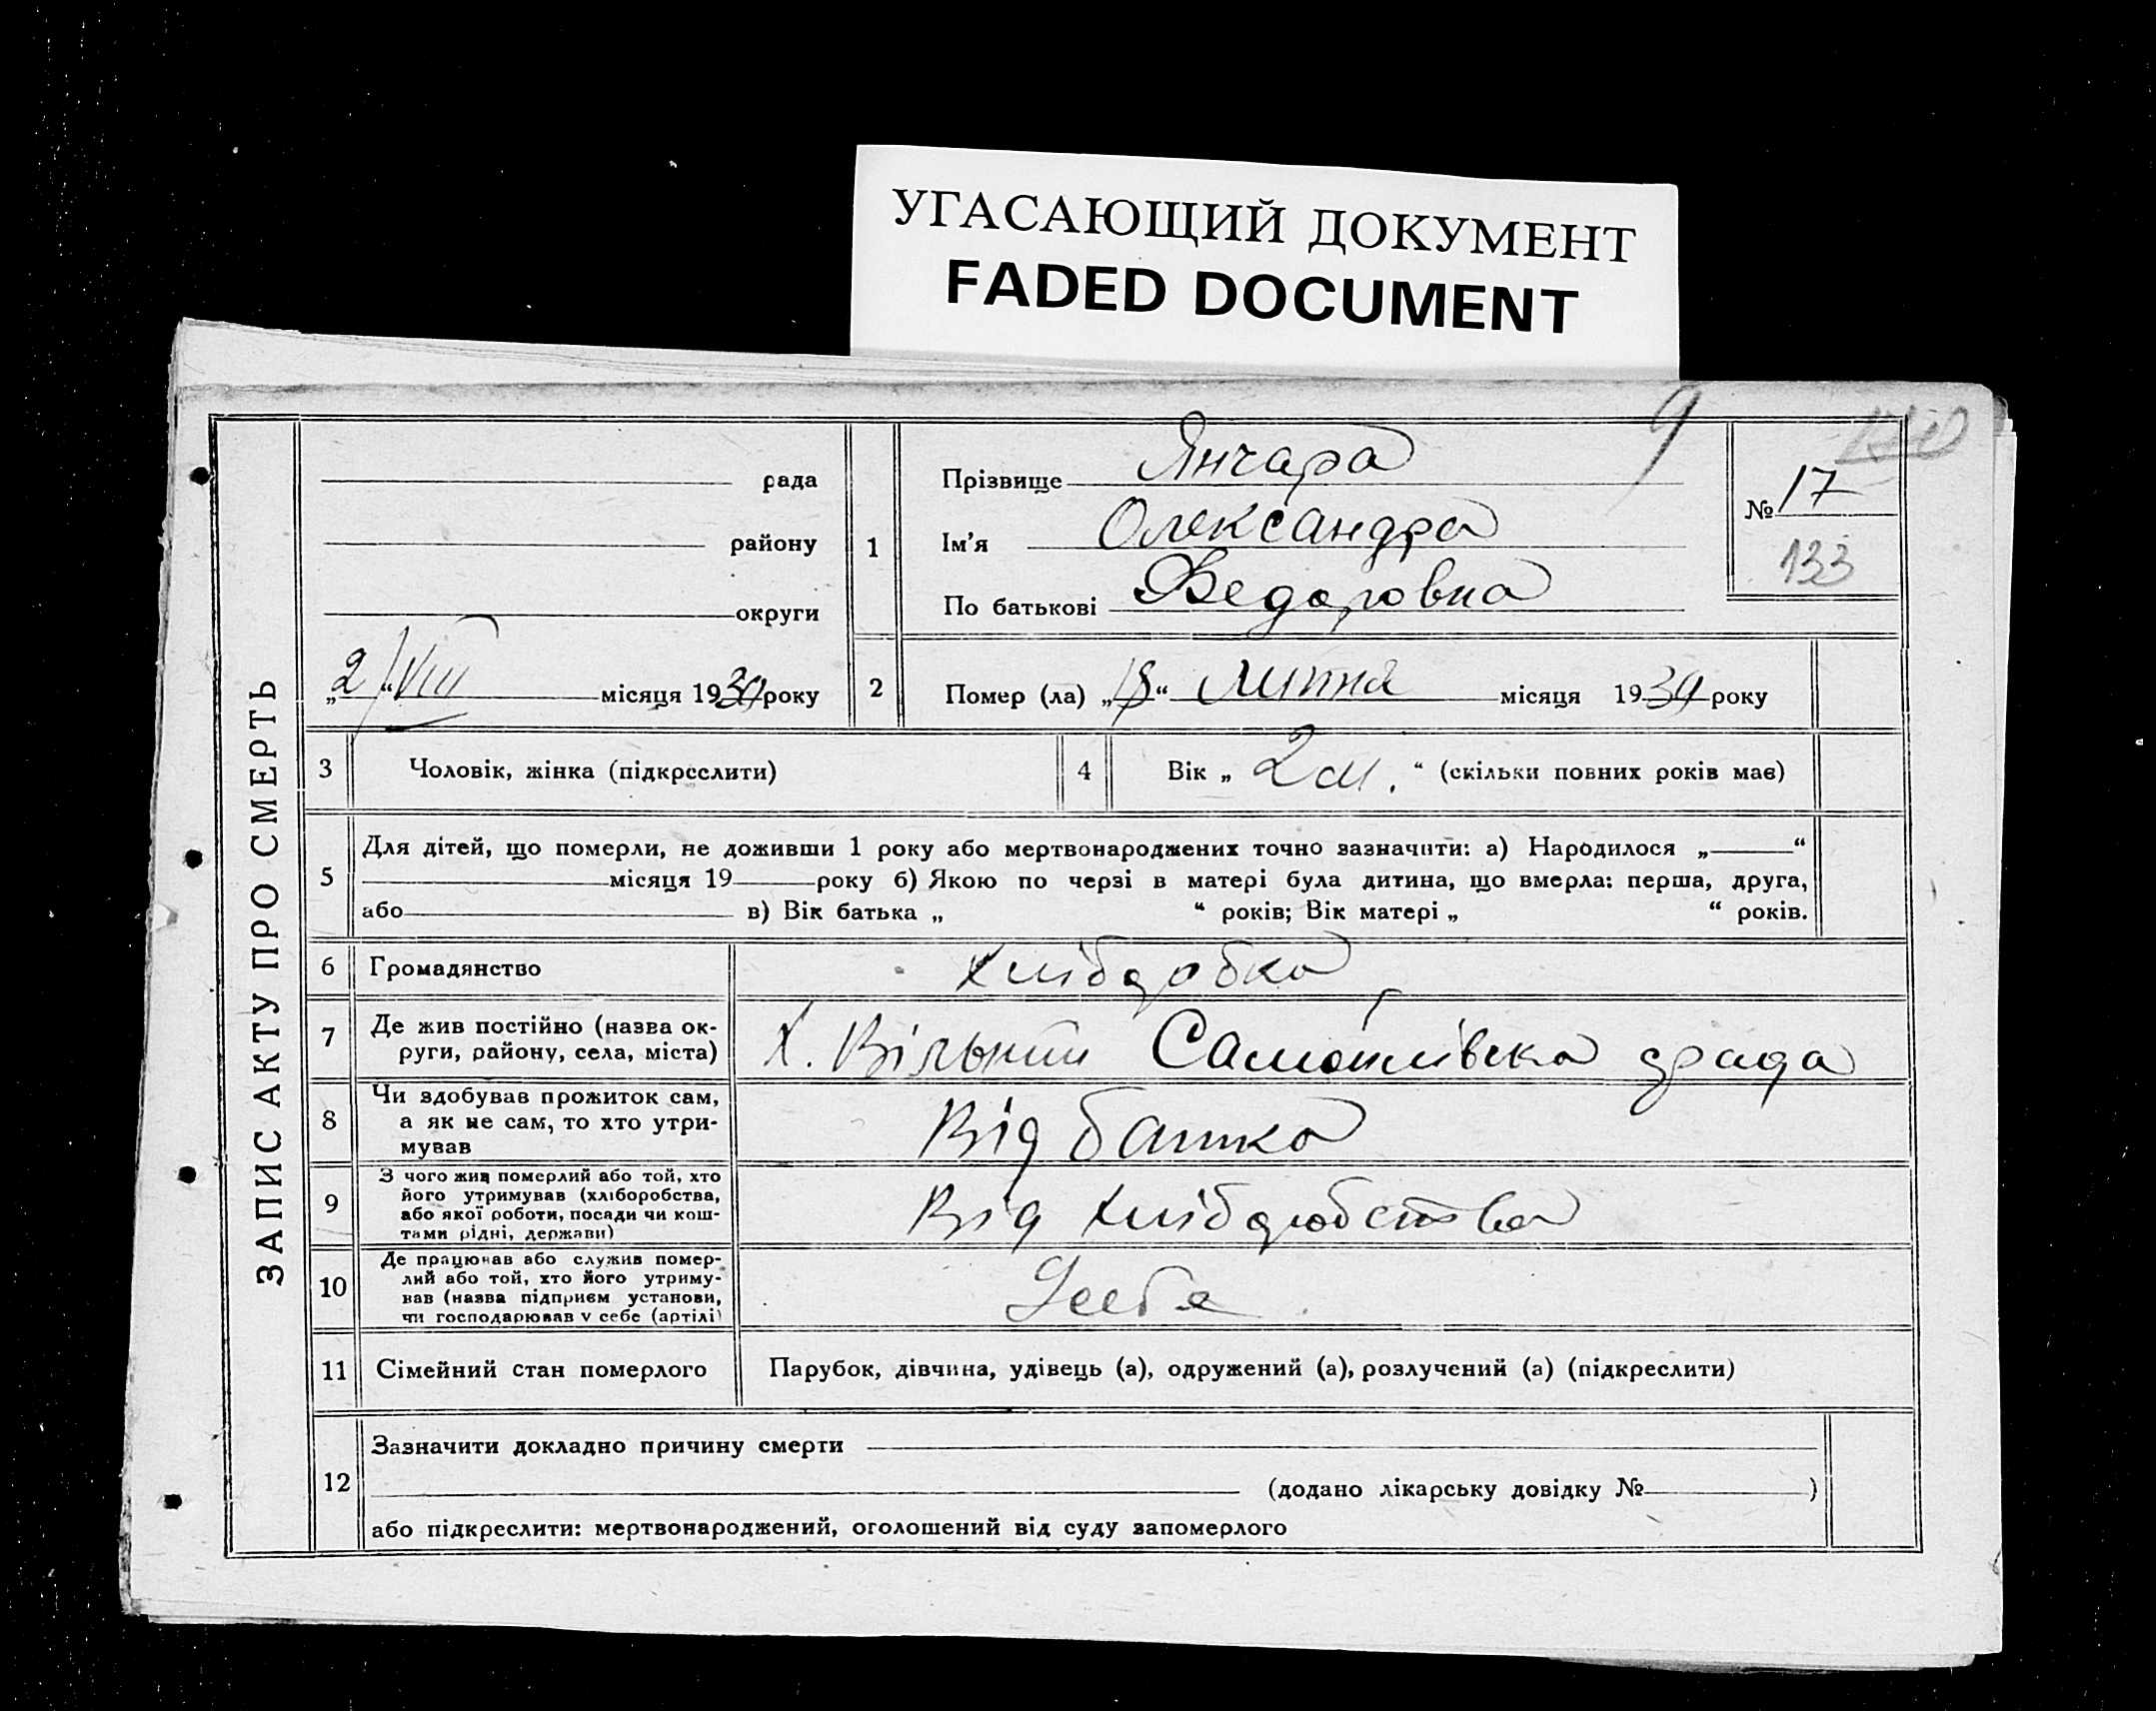 УГАСАЮЩИЙ ДОКУМЕНТ
FADED DOCUMENT
9
ЗАПИС АКТУ ПРО СМЕРТЬ
рада
району
округи
„2“ VIII місяця 1930 року
1
Прізвище Янчара
Ім'я Олександра
По батькові Федоровна
№ 17
133
2
Помер (ла) „18“ Липня місяця 1930 року
3
Чоловік, жінка (підкреслити)
4
Вік „2 м.“ (скільки повних років має)
5
Для дітей, що померли, не доживши 1 року або мертвонароджених точно зазначити: а) Народилося „ “
місяця 19 року б) Якою по черзі в матері була дитина, що вмерла: перша, друга,
або в) Вік батька „ “ років; Вік матері „ “ років.
6
Громадянство
7
Де жив постійно (назва ок-
руги, району, села, міста)
Х. Вільний рада
8
Чи здобував прожиток сам,
а як не сам, то хто утри-
мував
Від батка
9
З чого жив померлий або той, хто
його утримував (хліборобства,
або якої роботи, посади чи кош-
тами рідні, держави)
Від хліборобства
10
Де працював або служив помер-
лий або той, хто його утриму-
вав (назва підприєм установи,
чи господарював у себе (артілі)
У себе
11
Сімейний стан померлого
Парубок, дівчина, удівець (а), одружений (а), розлучений (а) (підкреслити)
12
Зазначити докладно причину смерти
(додано лікарську довідку № )
або підкреслити: мертвонароджений, оголошений від суду запомерлого